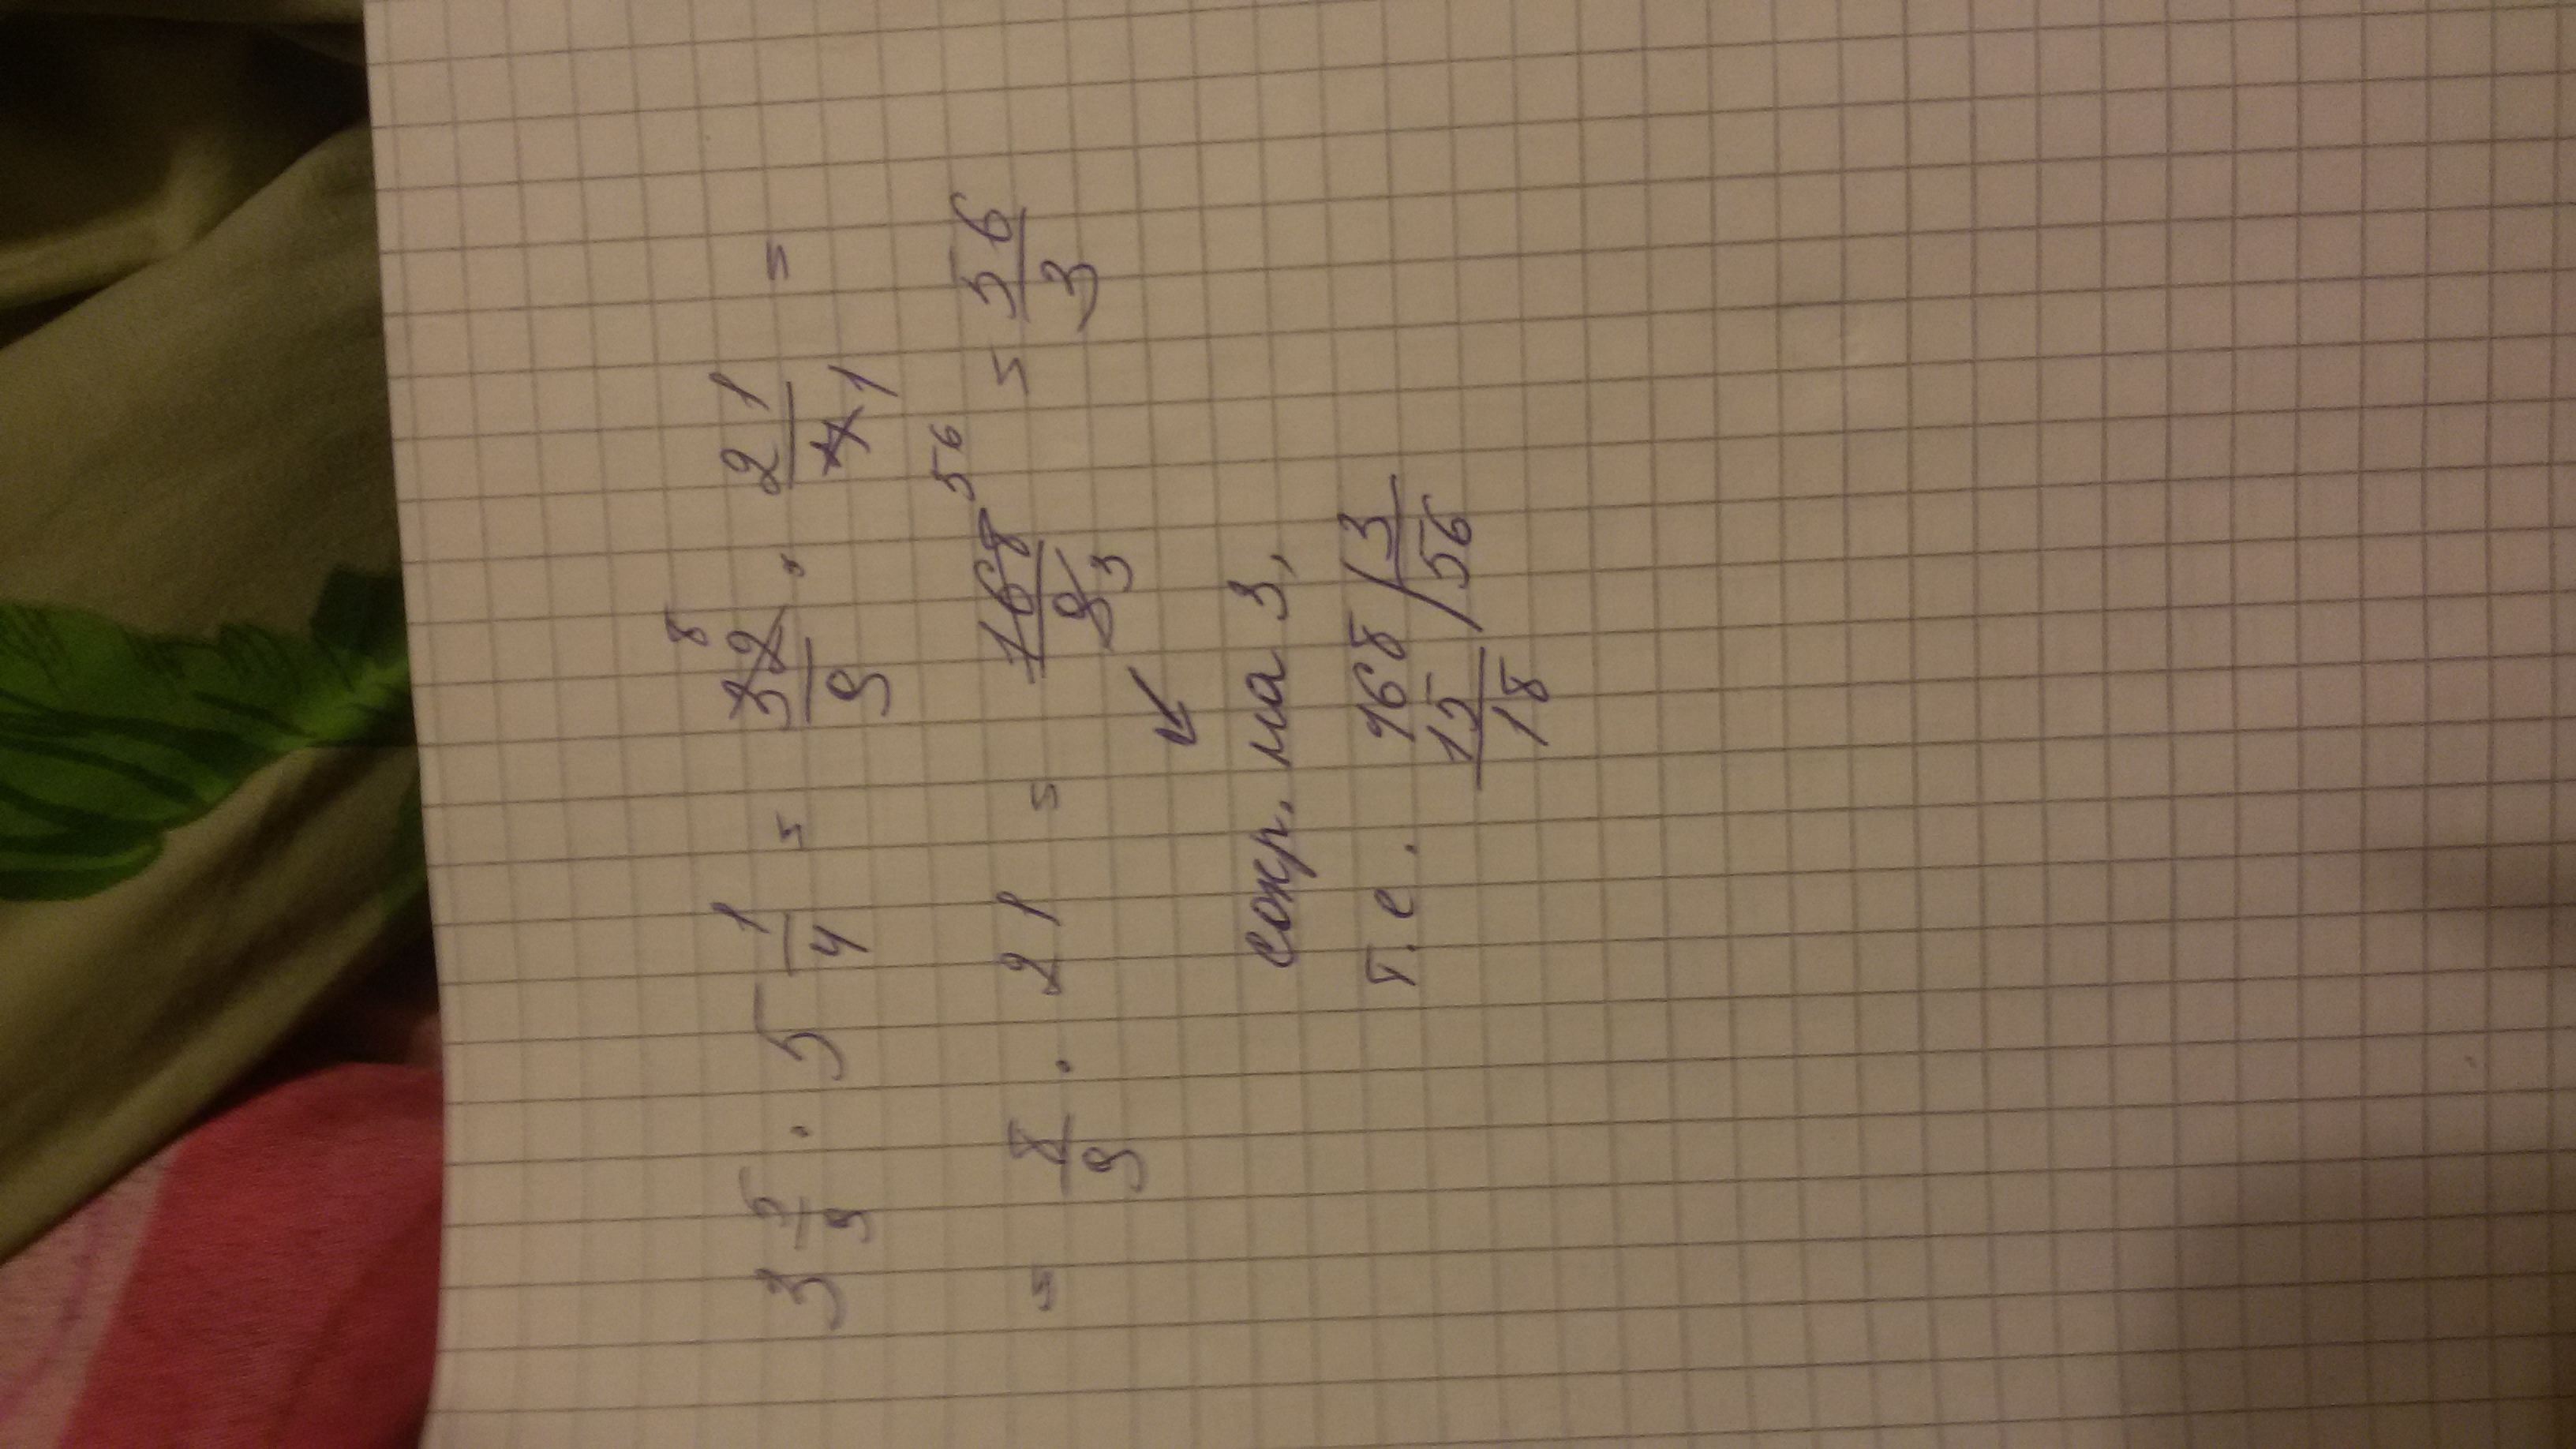 3 5/9 · 5 1/4 = 32 8/9 · 21/4 1 =
= 8/9 · 21 = 168 56/9 3 = 56/3
сокр. на 3,
т.е. 168 | 3
15 | 56
18